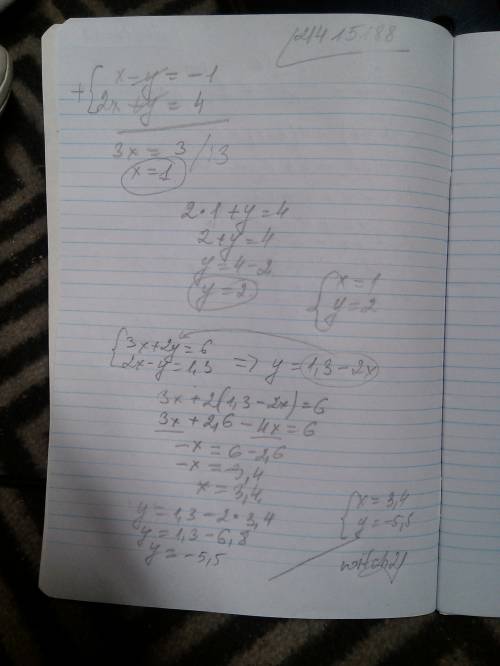 12|415188
+{ x - y = -1
2x + y = 4
3x = 3 /:3
x = 1
2 · 1 + y = 4
2 + y = 4
y = 4 - 2
y = 2
{ x = 1
y = 2
{ 3x + 2y = 6
2x - y = 1,3 => y = 1,3 - 2x
3x + 2(1,3 - 2x) = 6
3x + 2,6 - 4x = 6
-x = 6 - 2,6
-x = 3,4
x = 3,4
y = 1,3 - 2 · 3,4
y = 1,3 - 6,8
y = -5,5
{ x = 3,4
y = -5,5